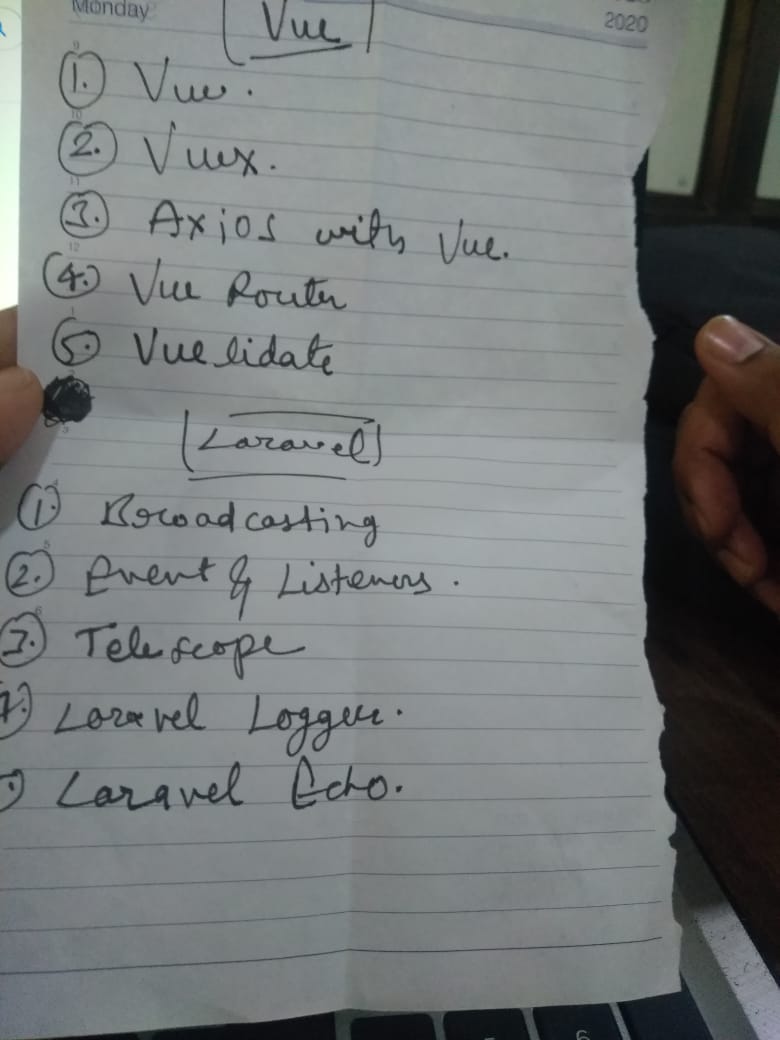 Monday
2020
Vue
1. Vue.
2. Vuex.
3. Axios with Vue.
4. Vue Router
5. Vuelidate
Laravel
1. Broadcasting
2. Event & Listeners.
3. Telescope
Laravel Logger.
Laravel Echo.